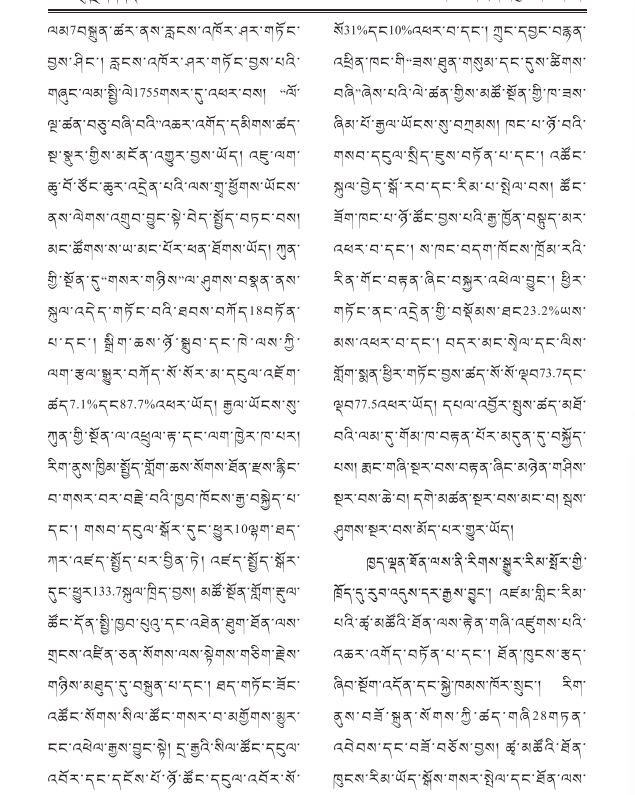 ལམ7བསྐྲུན་ཚར་ནས་རླངས་འཁོར་ཤར་གཏོང་
བྱས་ཤིང་། རླངས་འཁོར་ཤར་གཏོང་བྱས་པའི་
གཞུང་ལམ་སྤྱི་ལེ1755གསར་དུ་འཕར་བས། “ལོ་
ལྔ་ཚན་བཅུ་བཞི་བའི”འཆར་འགོད་དམིགས་ཚད་
སྔ་སྣུར་གྱིས་མངོན་འགྱུར་བྱས་ཡོད། འཇུ་ལག་
ཆུ་བོ་ཙོང་ཆུར་འདྲེན་པའི་ལས་གྲྭ་ཕྱོགས་ཡོངས་
ནས་ལེགས་འགྲུབ་བྱུང་སྟེ་བེད་སྤྱོད་བཏང་བས།
མང་ཚོགས་ས་ཡ་མང་པོར་ཕན་ཐོགས་ཡོད། ཀུན་
གྱི་སྔོན་དུ“གསར་གཉིས”ལ་ཤུགས་བསྣན་ནས་
སྐུལ་འདེད་གཏོང་བའི་ཐབས་བཀོད18བཏོན་
པ་དང་། སྒྲིག་ཆས་ཉོ་སྒྲུབ་དང་ཁེ་ལས་ཀྱི་
ལག་རྩལ་སྒྱུར་བཀོད་སོ་སོར་མ་དངུལ་འཇོག་
ཚད7.1%དང87.7%འཕར་ཡོད། རྒྱལ་ཡོངས་སུ་
ཀུན་གྱི་སྔོན་ལ་འཕྲུལ་རྟ་དང་ལག་ཁྱེར་ཁ་པར།
རིག་ནུས་ཁྱིམ་སྤྱོད་གློག་ཆས་སོགས་ཐོན་རྫས་རྙིང་
བ་གསར་བར་བརྗེ་བའི་ཁྱབ་ཁོངས་རྒྱ་བསྐྱེད་པ་
དང་། གསབ་དངུལ་སྒོར་དུང་ཕྱུར10ལྷག་ཐད་
ཀར་འཛད་སྤྱོད་པར་བྱིན་ཏེ། འཛད་སྤྱོད་སྒོར་
དུང་ཕྱུར133.7སྐུལ་ཁྲིད་བྱས། མཚོ་སྔོན་གློག་རྡུལ་
ཚོང་དོན་སྤྱི་ཁྱབ་པུའུ་དང་འཐེན་ཐུག་ཐོན་ལས་
གྲངས་འཛིན་ཅན་སོགས་ལས་སྟེགས་གཅིག་རྗེས་
གཉིས་མཐུད་དུ་བསྐྲུན་པ་དང་། ཐད་གཏོང་ཟོང་
འཚོང་སོགས་སིལ་ཚོང་གསར་བ་མགྱོགས་མྱུར་
ངང་འཕེལ་རྒྱས་བྱུང་སྟེ། དྲ་རྒྱའི་སིལ་ཚོང་དངུལ་
འབོར་དང་དངོས་པོ་ཉོ་ཚོང་དངུལ་འབོར་སོ་
སོ31%དང10%འཕར་བ་དང་། ཀྲུང་དབྱང་བརྙན་
འཕྲིན་ཁང་གི“ཟས་ཐུན་གསུམ་དང་དུས་ཚིགས་
བཞི”ཞེས་པའི་ལེ་ཚན་གྱིས་མཚོ་སྔོན་གྱི་ཁ་ཟས་
ཞིམ་པོ་རྒྱལ་ཡོངས་སུ་བཀྲམས། ཁང་པ་ཉོ་བའི་
གསབ་དངུལ་སྲིད་ཇུས་བཏོན་པ་དང་། འཚོང་
སྐུལ་བྱེད་སྒོ་རབ་དང་རིམ་པ་སྤེལ་བས། ཚོང་
ཟོག་ཁང་པ་ཉོ་ཚོང་བྱས་པའི་རྒྱ་ཁྱོན་བསྟུད་མར་
འཕར་བ་དང་། ས་ཁང་བདག་ཁོངས་ཁྲོམ་རའི་
རིན་གོང་བརྟན་ཞིང་བསྐྱར་འཕེལ་བྱུང་། ཕྱིར་
གཏོང་ནང་འདྲེན་གྱི་བསྡོམས་ཐང23.2%ཡས་
མས་འཕར་བ་དང་། བདར་མང་སེལ་དང་ལིས་
གློག་སྨན་ཕྱིར་གཏོང་བྱས་ཚད་སོ་སོ་ལྡབ73.7དང་
ལྡབ77.5འཕར་ཡོད། དཔལ་འབྱོར་སྤུས་ཚད་མཐོ་
བའི་ལམ་དུ་གོམ་ཁ་བརྟན་པོར་མདུན་དུ་བསྐྱོད་
པས། རྨང་གཞི་སྔར་བས་བརྟན་ཞིང་མཉེན་གཤིས་
སྔར་བས་ཆེ་བ། དགེ་མཚན་སྔར་བས་མང་བ། སྦས་
ཤུགས་སྔར་བས་མོད་པར་གྱུར་ཡོད།
ཁྱད་ལྡན་ཐོན་ལས་ནི་རིགས་སྒྱུར་རིམ་སྤོར་གྱི་
ཁྲོད་དུ་རུབ་འདུས་དར་རྒྱས་བྱུང་། འཛམ་གླིང་རིམ་
པའི་ཚྭ་མཚོའི་ཐོན་ལས་རྟེན་གཞི་འཛུགས་པའི་
འཆར་འགོད་བཏོན་པ་དང་། ཐོན་ཁུངས་རྩད་
ཞིབ་སྔོག་འདོན་དང་སྐྱེ་ཁམས་ཁོར་སྲུང་། རིག་
ནུས་བཟོ་སྐྲུན་སོགས་ཀྱི་ཚད་གཞི28གཏན་
འབེབས་དང་བཟོ་བཅོས་བྱས། ཚྭ་མཚོའི་ཐོན་
ཁུངས་རིམ་ཡོད་སྒོས་གསར་སྤེལ་དང་ཐོན་ལས་